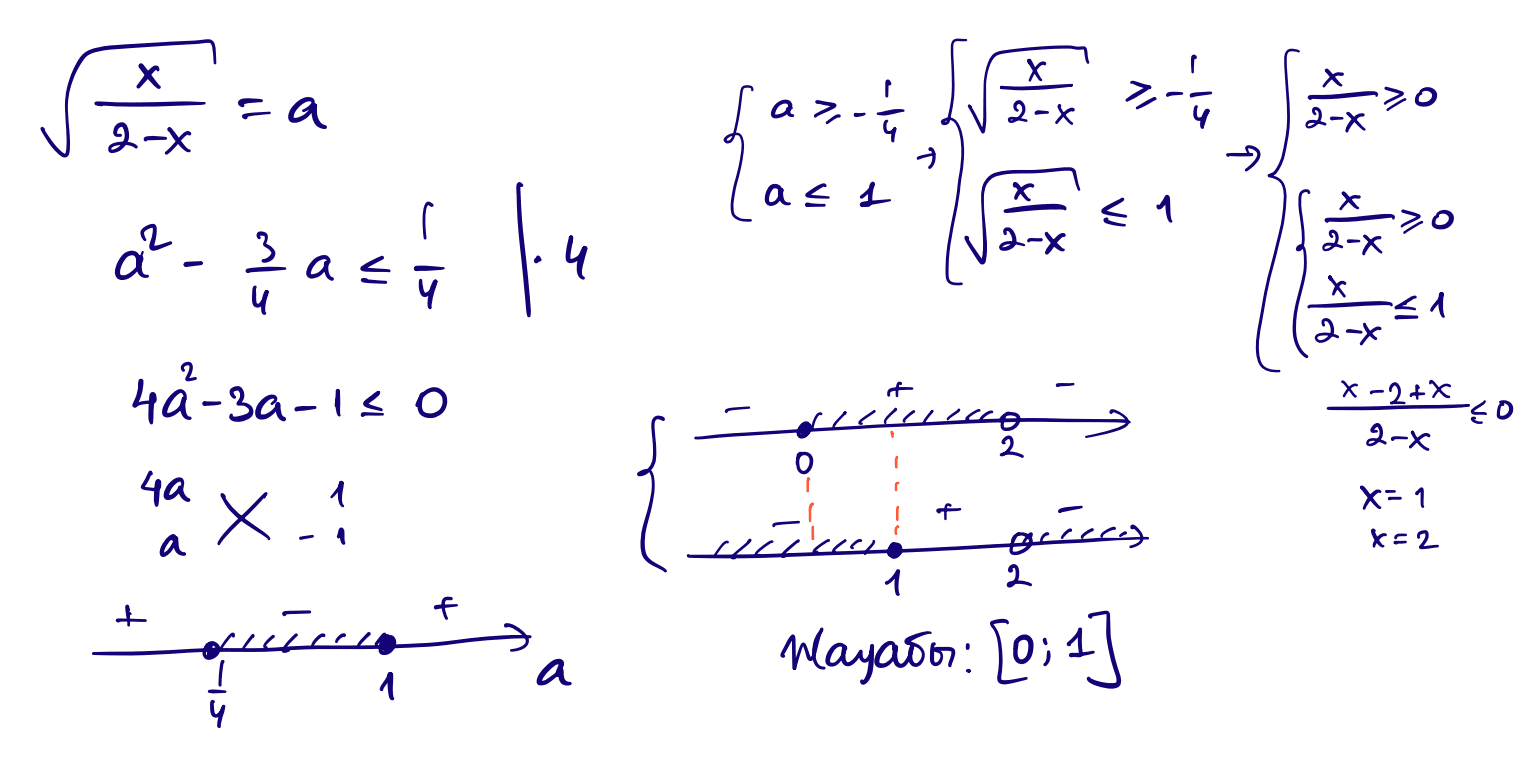 √(x/(2-x)) = a
a² - 3/4 a ≤ 1/4 | · 4
4a² - 3a - 1 ≤ 0
4a 1
a - 1
+ - +
1/4 1 a
{ a ≥ - 1/4
a ≤ 1
→ { √(x/(2-x)) ≥ - 1/4
√(x/(2-x)) ≤ 1
→ { x/(2-x) ≥ 0
{ x/(2-x) ≥ 0
x/(2-x) ≤ 1
(x - 2 + x)/(2-x) ≤ 0
x = 1
x = 2
- + -
0 2
- + -
1 2
Жауабы: [0; 1]